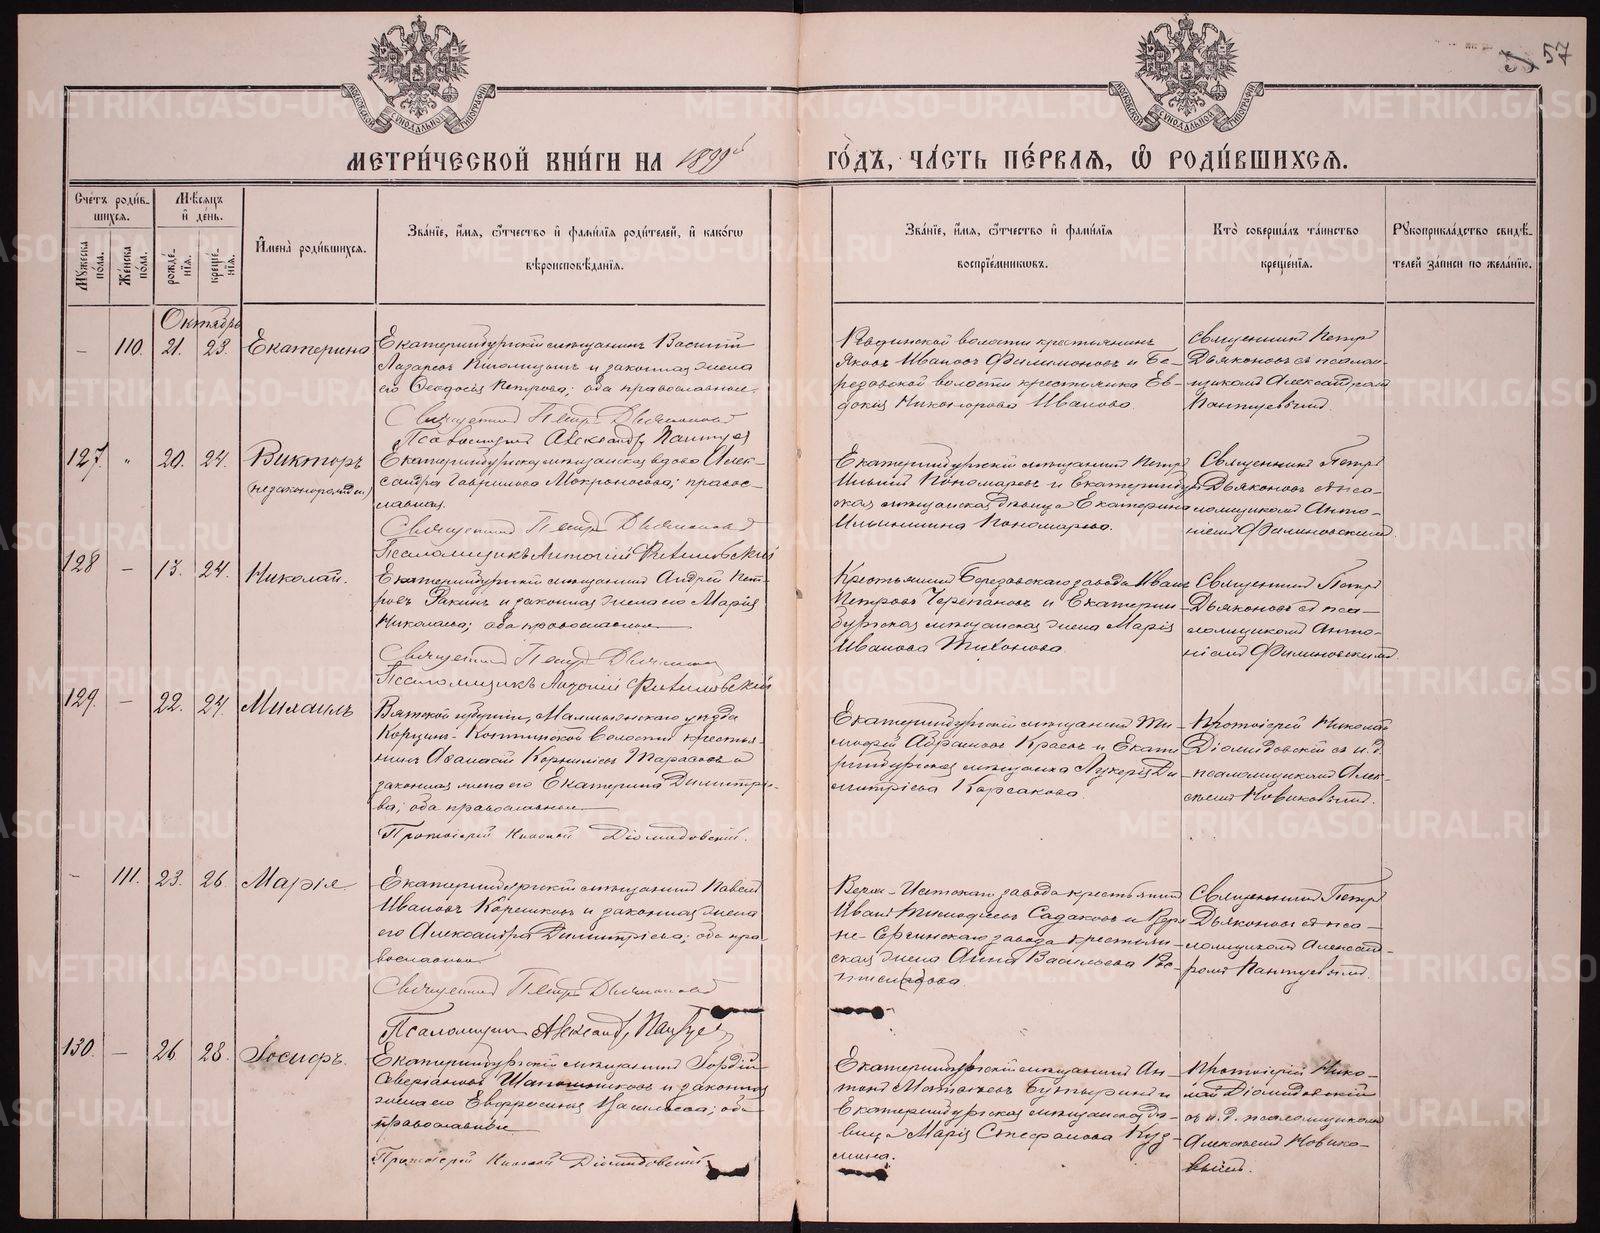 57
МЕТРИ́ЧЕСКОЙ КНИ́ГИ НА 1899й
ГО́ДЪ, ЧА́СТЬ ПЕ́РВАЯ, Ѡ РОДИ́ВШИХСЯ.
Сче́тъ роди́в-
шихся.
Мѣ́сяцъ
и де́нь.
Му́жеска по́ла.
Же́нска по́ла.
рожде́-
нїя.
креще́-
нїя.
Имена̀ роди́вшихся.
Зва́нїе, и́мя, ѻ́тчество и фами́лїя роди́телей, и како́гѡ
вѣроисповѣ́данїя.
Зва́нїе, и́мя, ѻ́тчество и фами́лїя
воспрїе́мниковъ.
Кто̀ соверша́лъ та́инство
креще́нїя.
Рукоприкла́дство свидѣ́-
телей за́писи по жела́нїю.
Октябрь
– 110. 21. 23. Екатерина
Екатеринбургскій мѣщанинъ Василій
Лазаревъ и законная жена
его Ѳеодосія Петрова; оба православные.
Священникъ Петръ Дьяконовъ
Псаломщикъ Александръ Пантуев
Ревдинской волости крестьянинъ
Яковъ Ивановъ Филимоновъ и Бе-
резовской волости крестьянка Ев-
докія Никонорова Иванова.
Священникъ Петръ
Дьяконовъ съ псалом-
щикомъ Александромъ
Пантуевымъ.
127. " 20. 24. Викторъ
(незаконорожден.)
Екатеринбургская мѣщанская вдова Алек-
сандра Гаврилова Мокроносова; правос-
лавная.
Священникъ Петръ Дьяконовъ
Псаломщикъ Антоній Филиновскій
Екатеринбургскій мѣщанинъ Петръ
Ильинъ Пономаревъ и Екатеринбург-
ская мѣщанская дѣвица Екатерина
Ильиншина Пономарева.
Священникъ Петръ
Дьяконовъ съ пса-
ломщикомъ Анто-
ніемъ Филиновскимъ.
128 – 13. 24. Николай.
Екатеринбургскій мѣщанинъ Андрей Пет-
ровъ и законная жена его Марія
Николаева; оба православные
Священникъ Петръ Дьяконовъ
Псаломщикъ Антоній Филиновскій
Крестьянинъ Березовскаго завода Иванъ
Петровъ Черепановъ и Екатерин-
бургская мѣщанская жена Марія
Иванова Тихонова.
Священникъ Петръ
Дьяконовъ съ пса-
ломщикомъ Анто-
ніемъ Филиновскимъ.
129. – 22. 24. Михаилъ
Вятской губерніи, Малмыжскаго уѣзда
волости крестья-
нинъ Аѳанасій Корниліевъ Тарасовъ и
законная жена его Екатерина Димитріе-
ва; оба православные
Протоіерей Николай Діомидовскій.
Екатеринбургскій мѣщанинъ Ти-
моѳей Абрамовъ Красовъ и Екате-
ринбургская мѣщанка Лукерія Ди-
митріева Корсакова
Протоіерей Николай
Діомидовскій съ и.д.
псаломщикомъ Алек-
сѣемъ Новиковымъ.
– 111. 23. 26. Марія
Екатеринбургскій мѣщанинъ Павелъ
Ивановъ Корешковъ и законная жена
его Александра Димитріева; оба пра-
вославные
Священникъ Петръ Дьяконовъ
Псаломщикъ Александръ Пантуев
Верхъ-Исетскаго завода крестьянинъ
Иванъ Тимоѳеевъ Садаковъ и Верх-
не-Сергинскаго завода крестьян-
ская жена Анна Васильева
Священникъ Петръ
Дьяконовъ съ пса-
ломщикомъ Александ-
ромъ Пантуевымъ.
130. – 26 28. Іосифъ.
Екатеринбургскій мѣщанинъ Гордій
Шапошниковъ и законная
жена его Евфросинія Васильева; оба
православные
Протоіерей Николай Діомидовскій
Екатеринбургскій мѣщанинъ Ан-
тонъ Матвѣевъ Бутыринъ и
Екатеринбургская мѣщанская дѣ-
вица Марія Стефанова Куз-
мина.
Протоіерей Нико-
лай Діомидовскій
съ и.д. псаломщикомъ
Алексѣемъ Новико-
вымъ.
METRIKI.GASO-URAL.RU